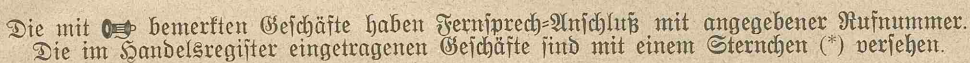 Die mit bemerkten Geschäfte haben Fernsprech-Anschluß mit angegebener Rufnummer.
Die im Handelsregister eingetragenen Geschäfte sind mit einem Sternchen (*) versehen.